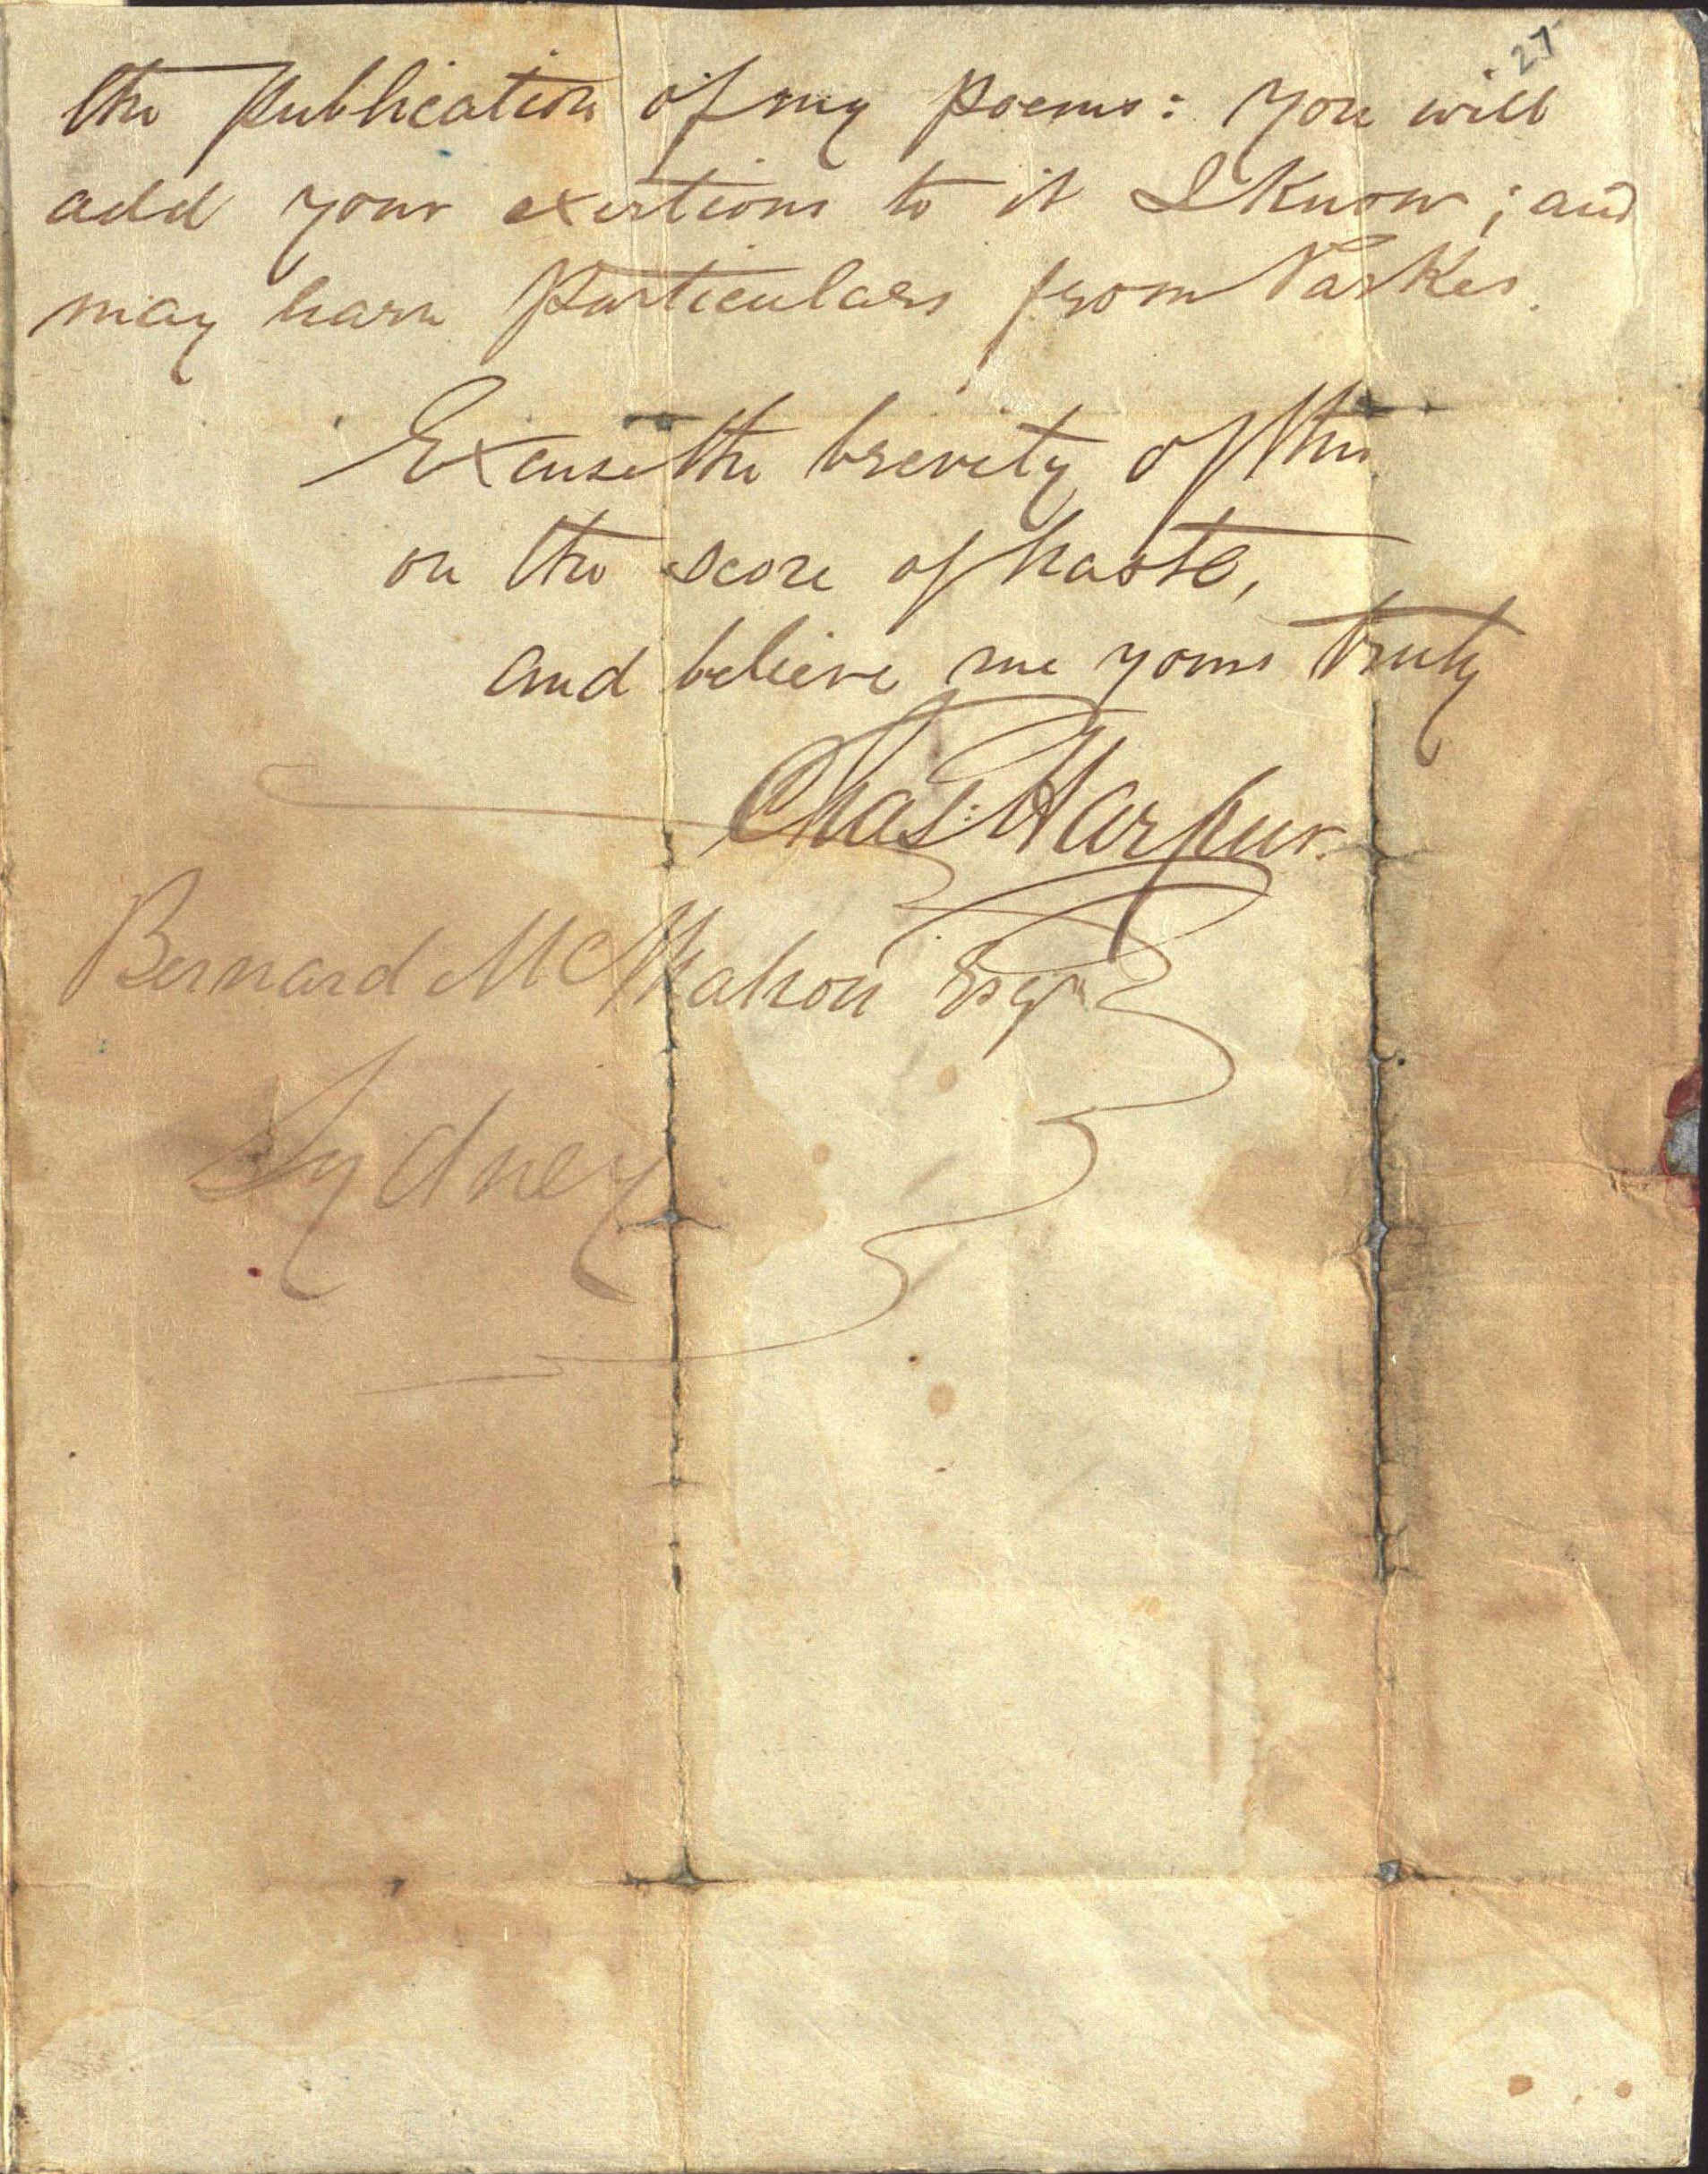 27
the publication of my poems: You will
add your exertions to it I know; and
may have particulars from Parkes.
Excuse the brevity of this
on the score of haste,
and believe me yours truly
Chas: Harpur.
Bernard McMahon Esqr
Sydney